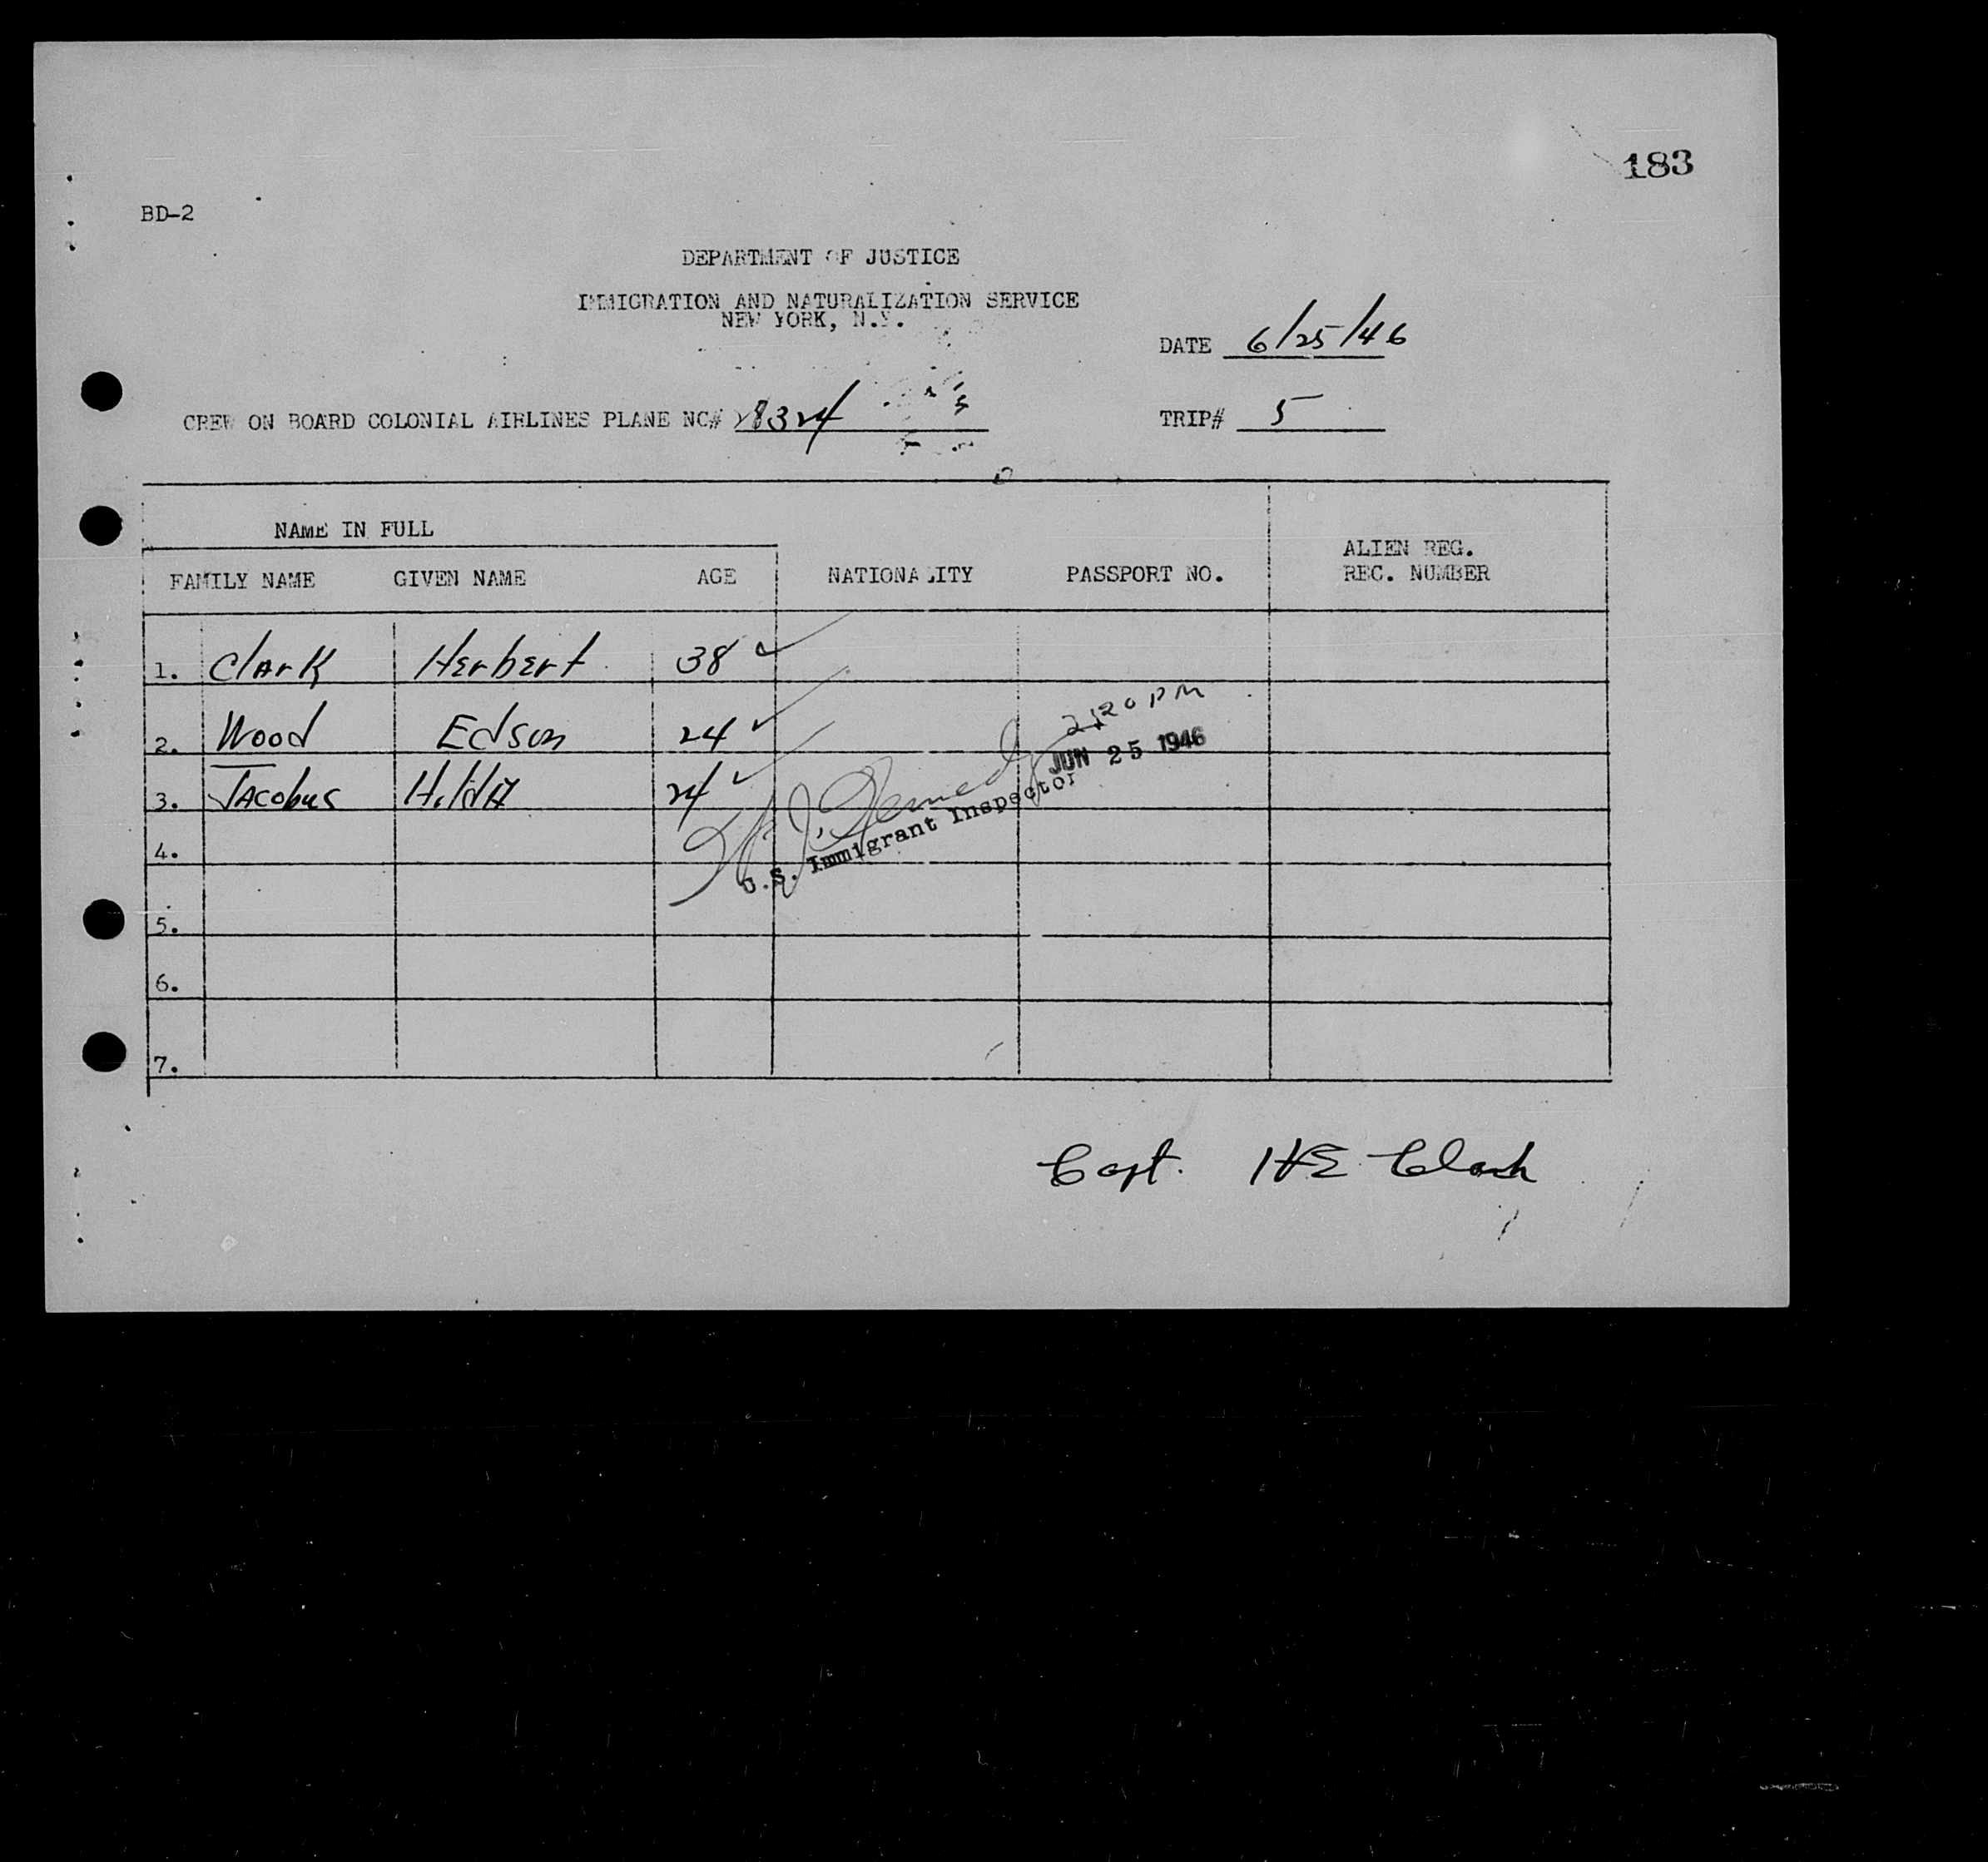 183
BD-2
DEPARTMENT OF JUSTICE
IMMIGRATION AND NATURALIZATION SERVICE
NEW YORK, N.Y.
DATE 6/25/46
CREW ON BOARD COLONIAL AIRLINES PLANE NC# 28324
TRIP# 5
NAME IN FULL
FAMILY NAME GIVEN NAME AGE NATIONALITY PASSPORT NO. ALIEN REG. REC. NUMBER
1. Clark Herbert 38
2. Wood Edson 24
3. Jacobus Hilda 24
2:20 PM
JUN 25 1946
U.S. Immigrant Inspector
4.
5.
6.
7.
Capt. HE Clark